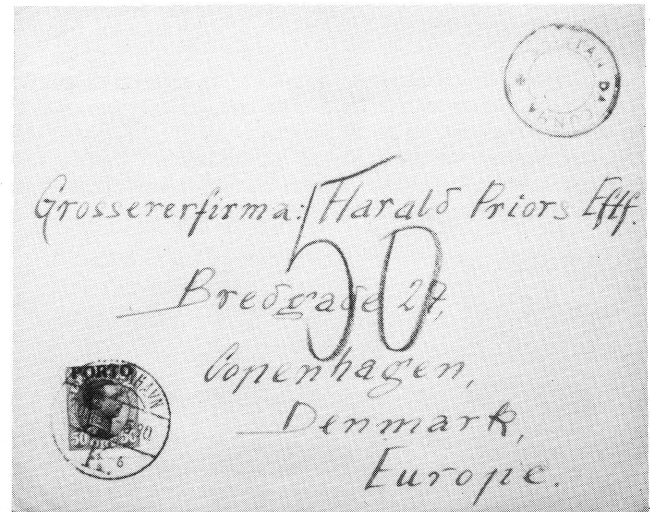 DA CUNHA
Grossererfirma: Harald Priors Eftf.
50
Bredgade 27,
Copenhagen,
Denmark,
Europe.
PORTO
50 50